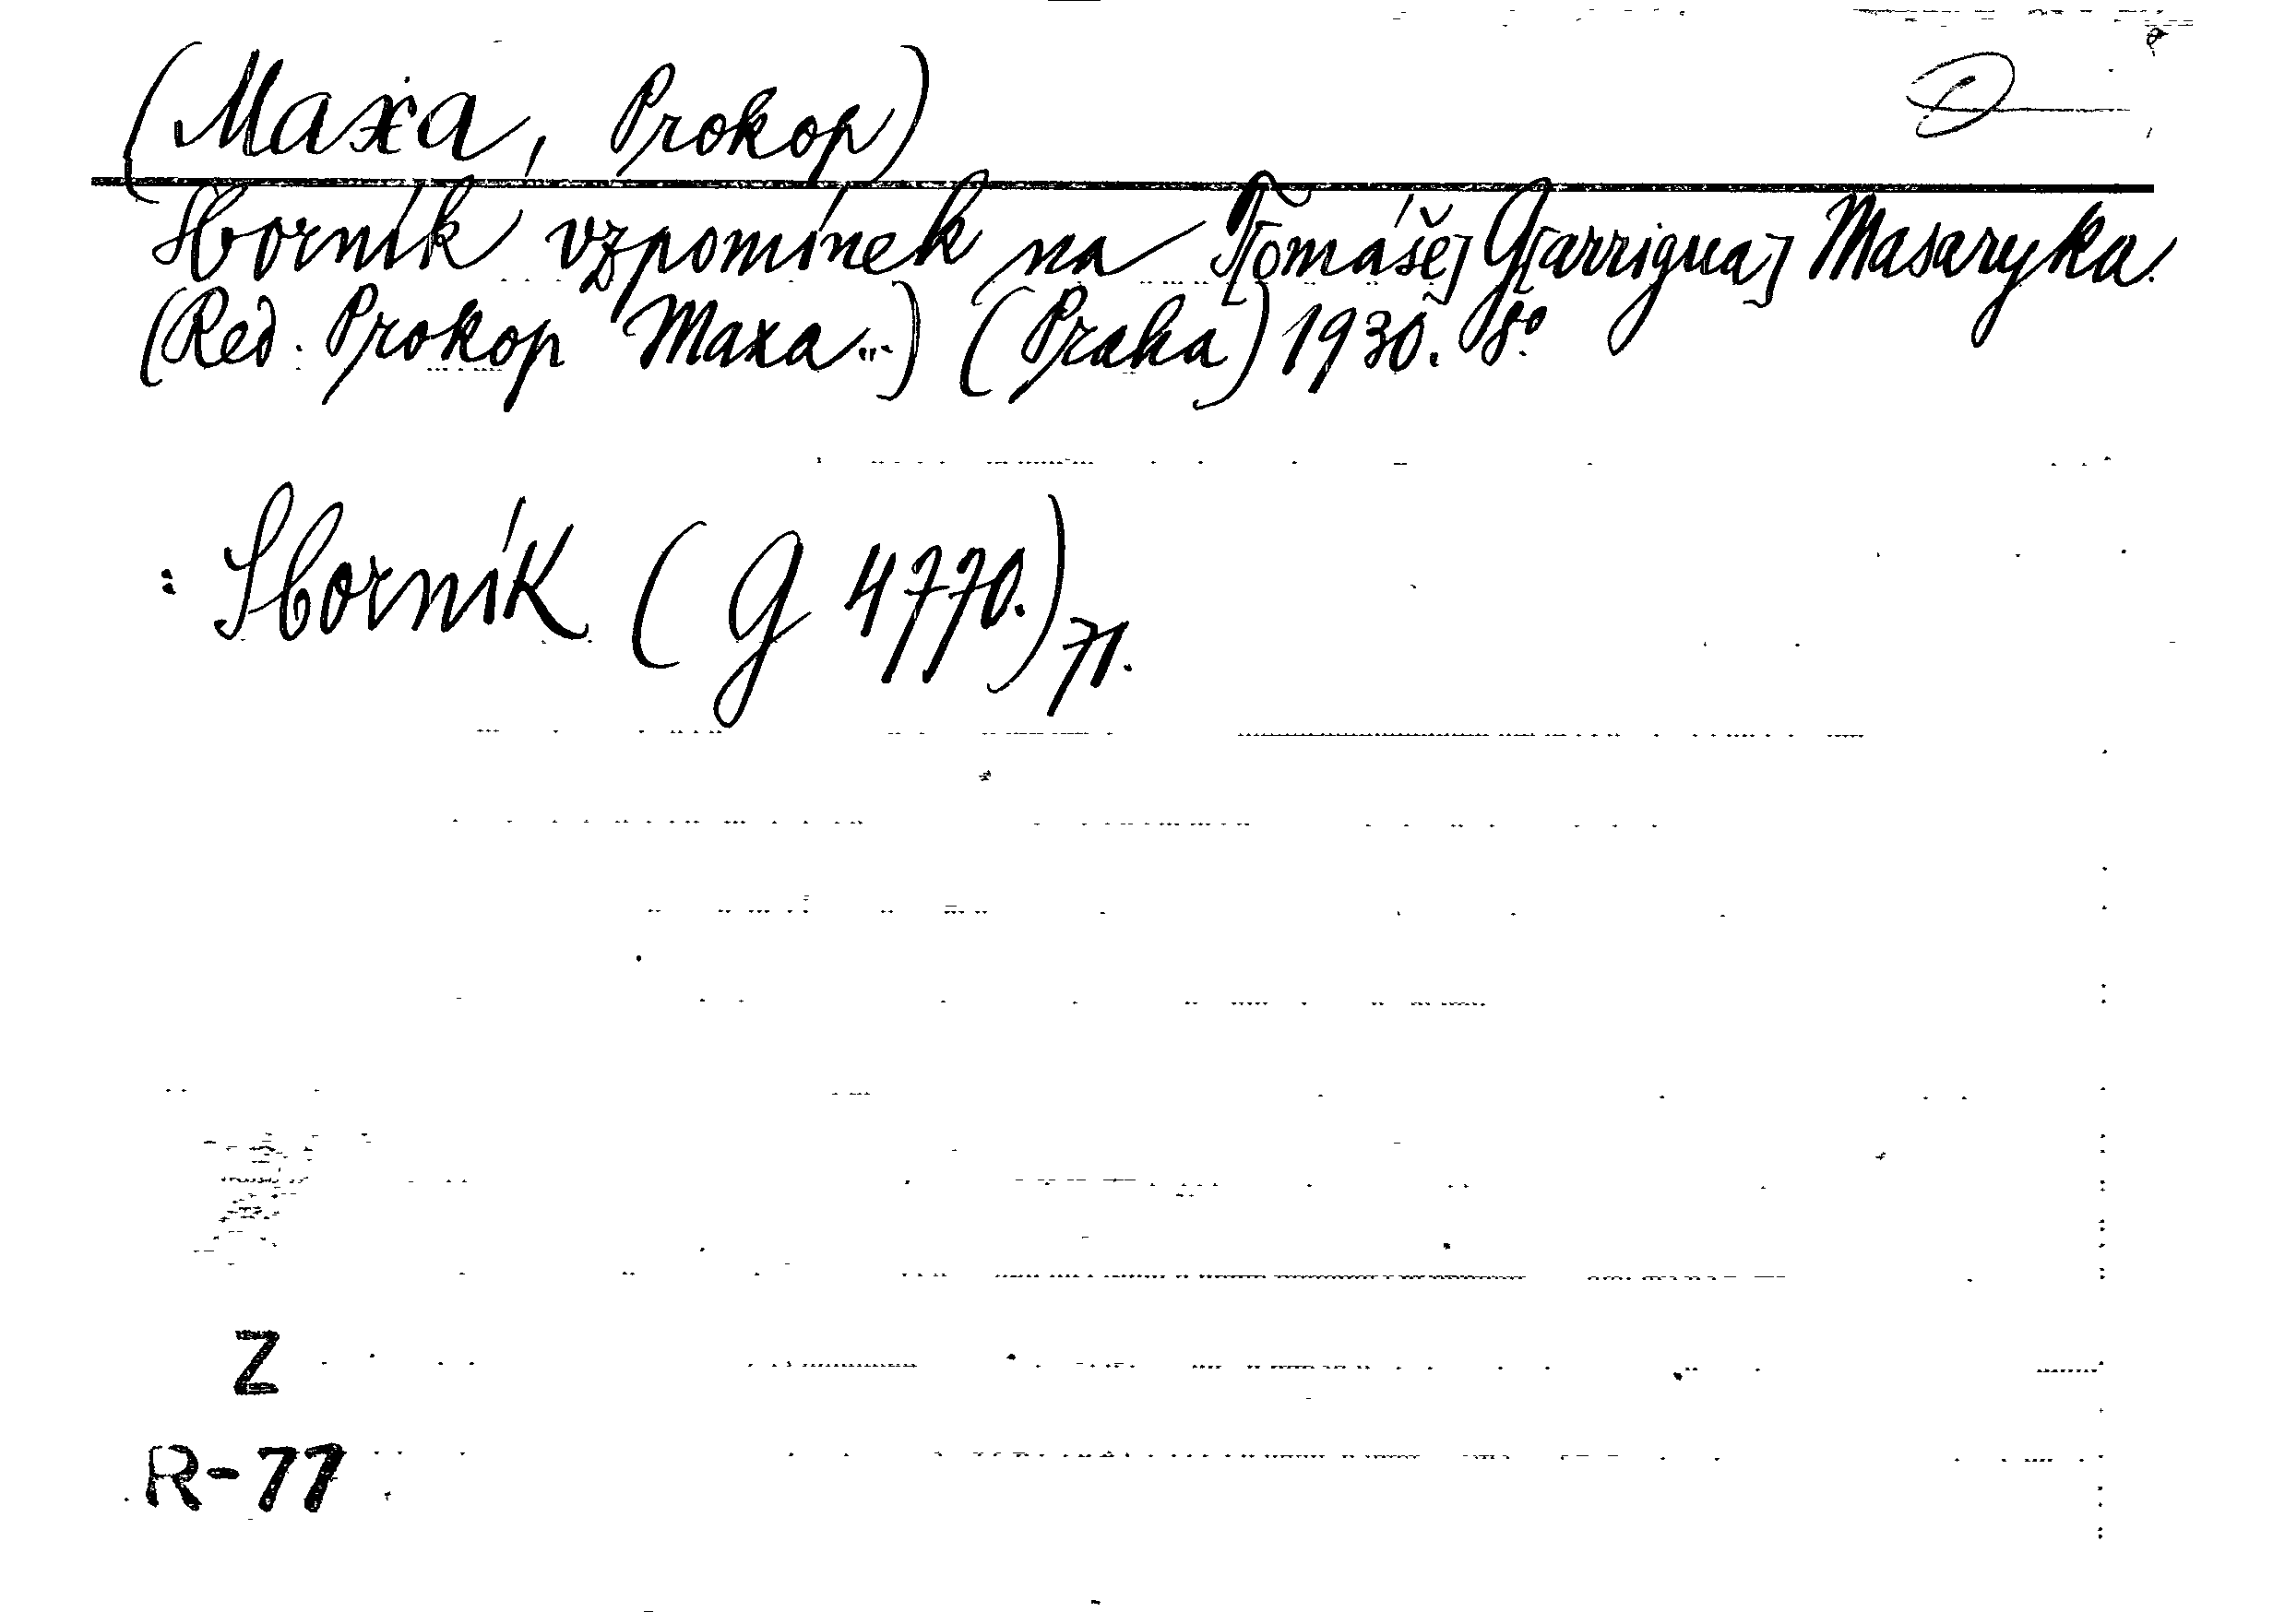 (Maxa, Prokop)
Sborník vzpomínek na T[omáše] G[arrigua] Masaryka.
(Red. Prokop Maxa...) (Praha) 1930. 8°
: Sborník (G 4770.) 71.
Z
R-77